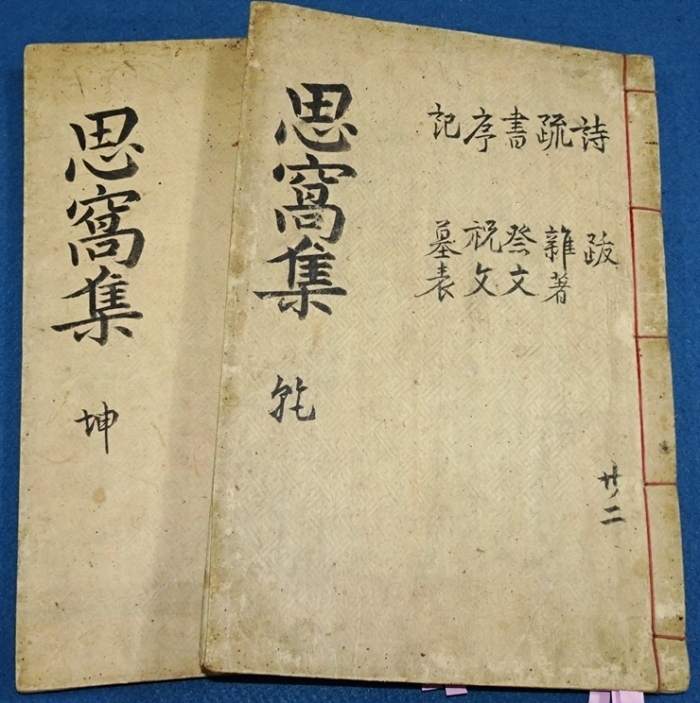 詩 跋
疏 雜著
書 祭文
序 祝文
記 墓表
共二
思窩集 乾
思窩集 坤